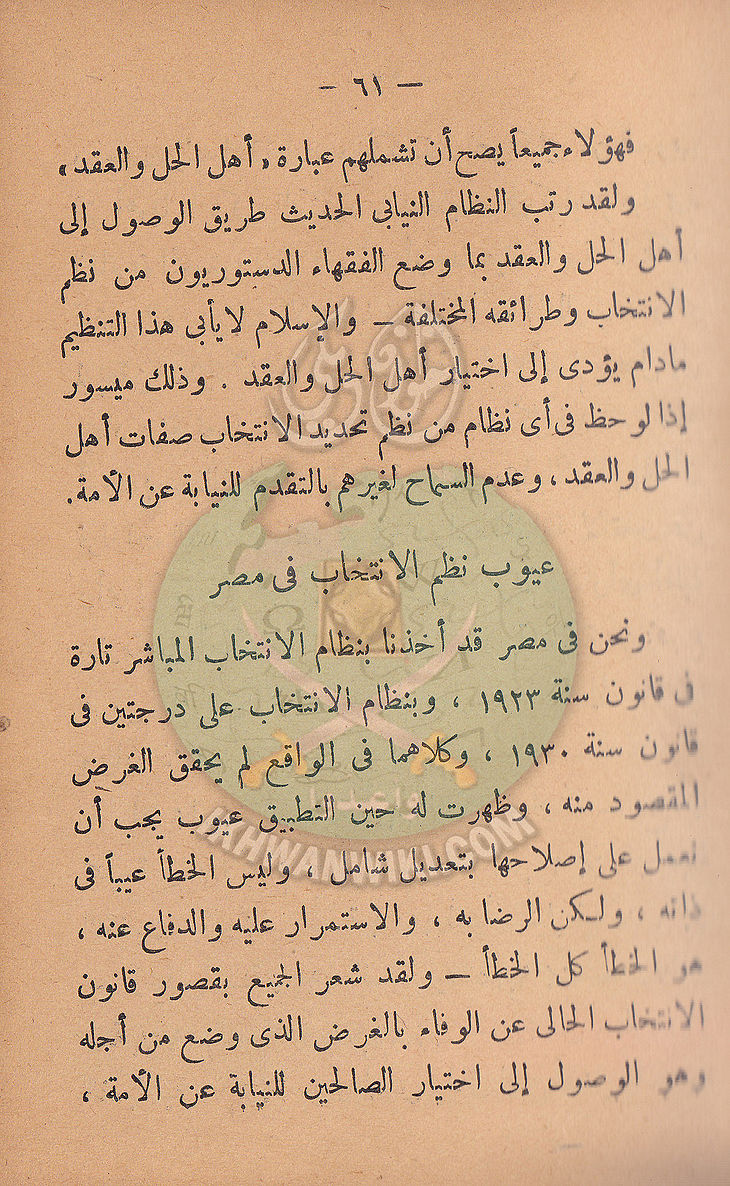 — ٦١ —
فهؤلاء جميعاً يصح أن تشملهم عبارة « أهل الحل والعقد »
ولقد رتب النظام النيابى الحديث طريق الوصول إلى
أهل الحل والعقد بما وضع الفقهاء الدستوريون من نظم
الانتخاب وطرائقه المختلفة — والإسلام لا يأبى هذا التنظيم
مادام يؤدى إلى اختيار أهل الحل والعقد . وذلك ميسور
إذا لوحظ فى أى نظام من نظم تحديد الانتخاب صفات أهل
الحل والعقد ، وعدم السماح لغيرهم بالتقدم للنيابة عن الأمة .
عيوب نظم الانتخاب فى مصر
ونحن فى مصر قد أخذنا بنظام الانتخاب المباشر تارة
فى قانون سنة ١٩٢٣ ، وبنظام الانتخاب على درجتين فى
قانون سنة ١٩٣٠ ، وكلاهما فى الواقع لم يحقق الغرض
المقصود منه ، وظهرت له حين التطبيق عيوب يجب أن
نعمل على إصلاحها بتعديل شامل ، وليس الخطأ عيباً فى
ذاته ، ولكن الرضا به ، والاستمرار عليه والدفاع عنه ،
هو الخطأ كل الخطأ — ولقد شعر الجميع بقصور قانون
الانتخاب الحالى عن الوفاء بالغرض الذى وضع من أجله
وهو الوصول إلى اختيار الصالحين للنيابة عن الأمة ،
IKHWANWIKI.COM